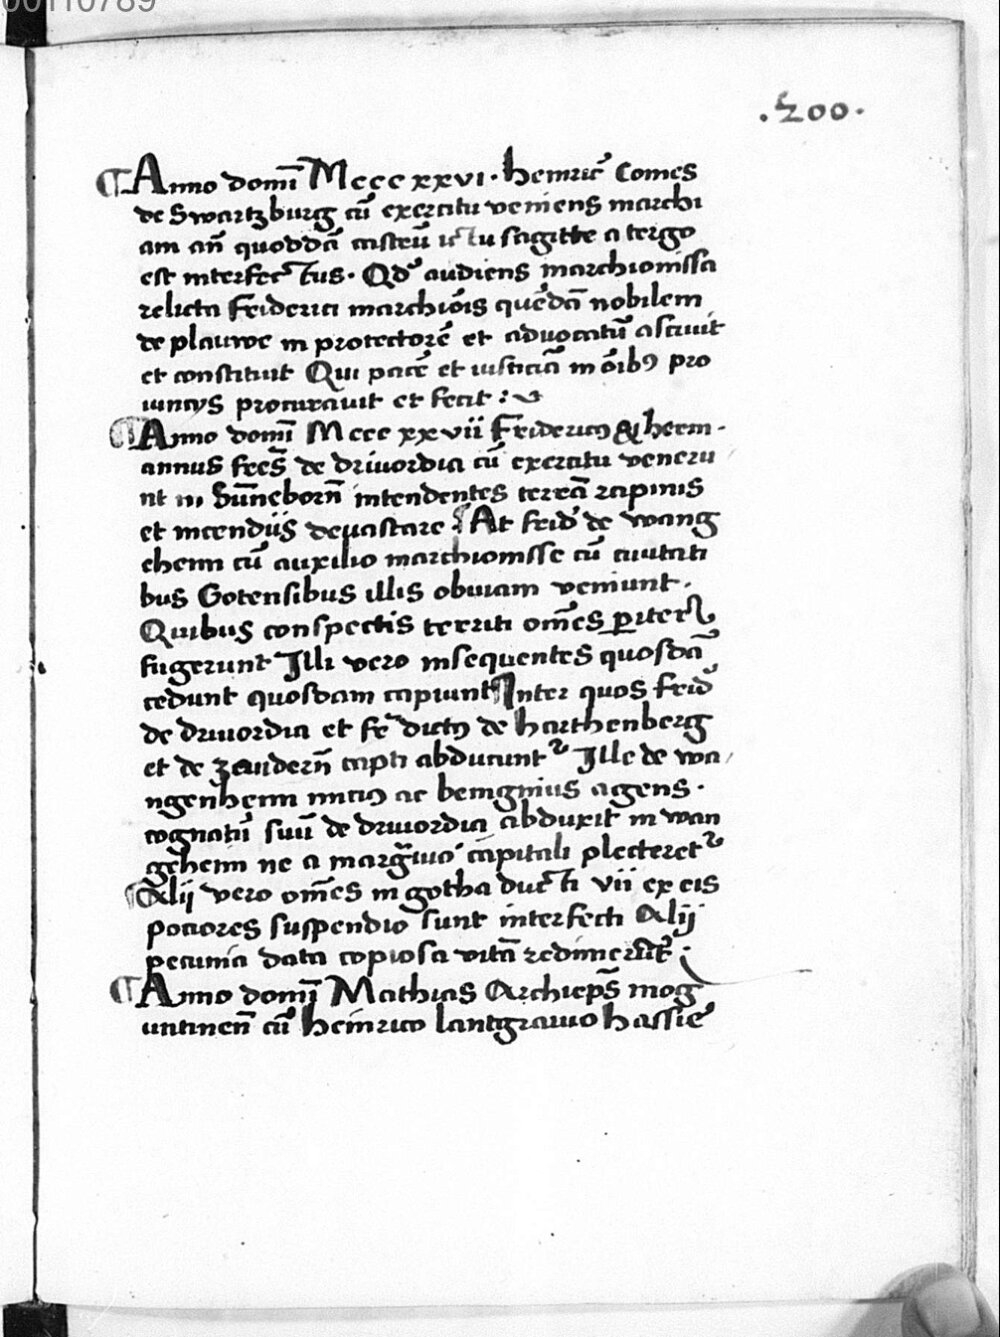 00110789
.200.
¶ Anno domī Mccc xxvi. heinric̄ Comes
de Swartzburg cū exercitu veniens marchi
am an̄ quoddā castrū ictu sagitte a tergo
est interfectus. Qd̄ audiens marchionissa
relicta Friderici marchiōis quēdā nobilem
de plauwe in protectorē et advocatū asciuit
et constituit Qui pacē et iusticiā in ōibꝰ pro
uincijs procurauit et fecit :
¶ Anno domī Mccc xxvii Fridericꝰ & herm-
annus frēs de driuordia cū exercitu veneru
nt in Sūneborn̄ intendentes terrā rapinis
et incendijs deuastare. ¶ At frid̄ de wang
ehem cū auxilio marchionisse cū ciuitati
bus Gotensibus illis obuiam veniunt.
Quibus conspectis territi om̄es ꝑiter
fugerunt Illi vero insequentes quosdā
cedunt quosdam capiunt ¶ Inter quos frid̄
de driuordia et fr̄ dictꝰ de harthenberg
et de zandern̄ capti abducunt᷑ Ille de wa
ngenhem miciꝰ ac benignius agens.
cognatū suū de driuordia abduxit in wan
gehem ne a marg̃uio capitali plecteret᷑
¶ Alij vero om̄es in gotha ducti vii ex eis
pociores suspendio sunt interfecti Alij
pecunia data copiosa vitā redimerūt ;
¶ Anno domī Mathias Archiep̄s mog
untinen̄ cū heinrico lantgrauio hassie